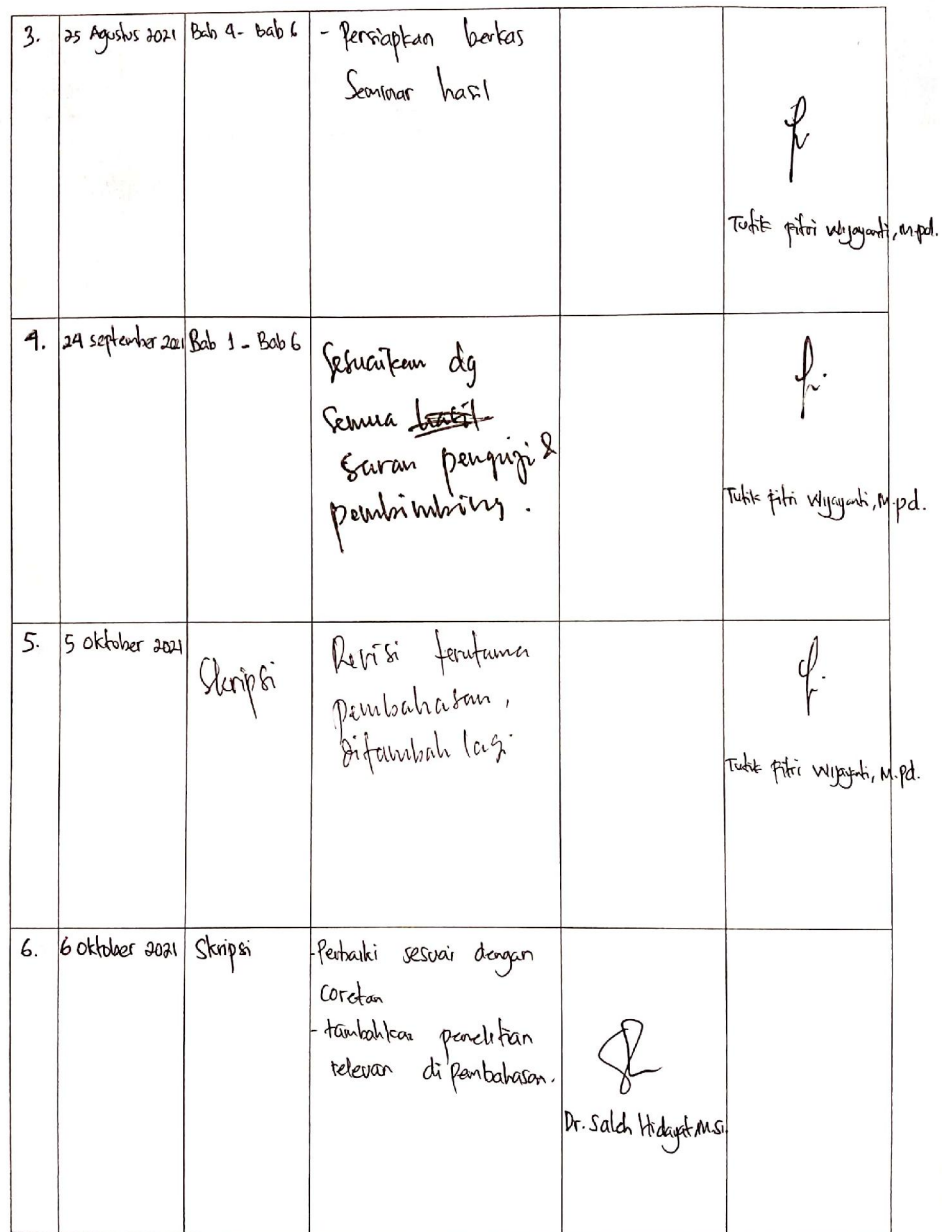 3. 25 Agustus 2021 Bab 4 - Bab 6 - Persiapkan berkas
Seminar hasil
Tutik Fitri Wijayanti, M.pd.
4. 24 september 2021 Bab 1 - Bab 6 Sesuaikan dg
semua hasil
saran penguji &
pembimbing.
Tutik Fitri Wijayanti, M.pd.
5. 5 Oktober 2021 Skripsi Revisi terutama
pembahasan,
ditambah lagi
Tutik Fitri Wijayanti, M.Pd.
6. 6 Oktober 2021 Skripsi - Perbaiki sesuai dengan
coretan
- tambahkan penelitian
relevan di pembahasan.
Dr. Saleh Hidayat, M.Si.